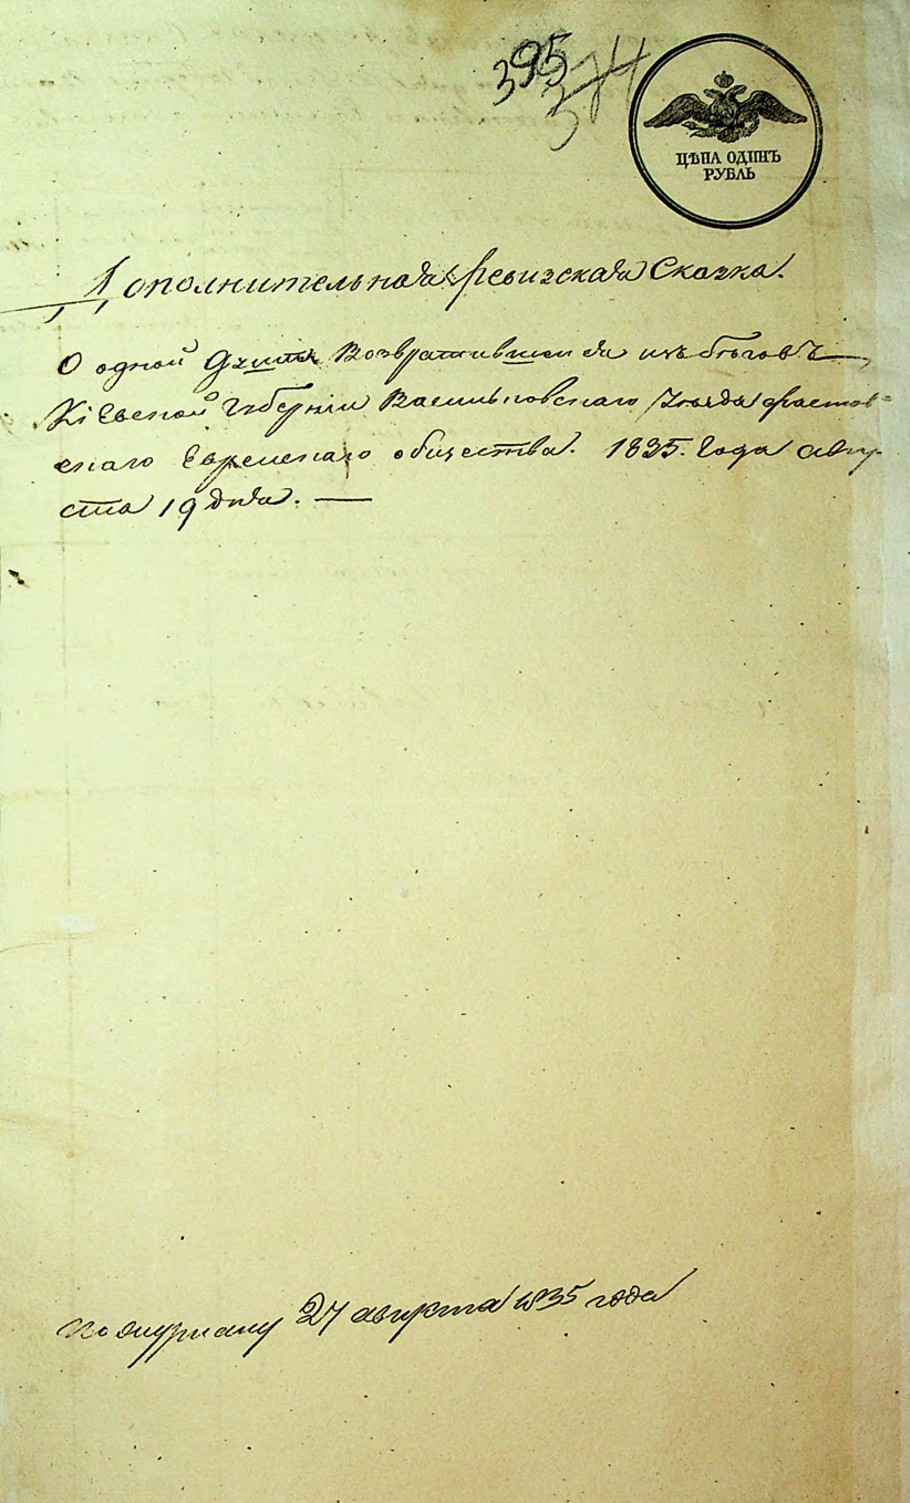 395
374
ЦѢНА ОДИНЪ
РУБЛЬ
Дополнительная Ревизская Сказка.
О одной Душѣ Возвратившейся изъ бѣговъ
Кіевской Губерніи Васильковскаго Уѣзда Фастов-
скаго Еврейскаго общества. 1835. Года авгу-
ста 19 дня.
По журналу 27 августа 1835 года